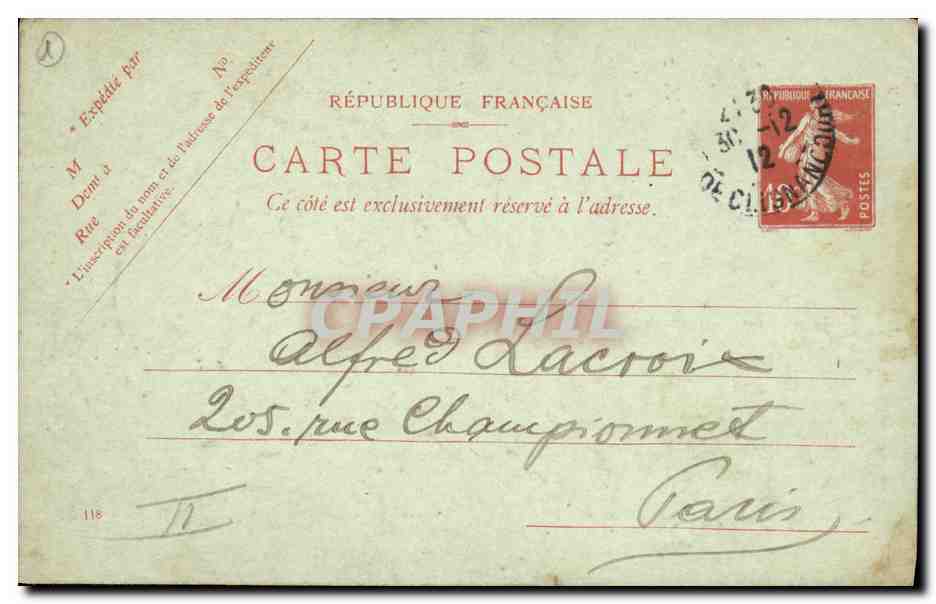 1
* Expédié par
M
Demt à
Rue
N°
* L'inscription du nom et de l'adresse de l'expéditeur
est facultative.
RÉPUBLIQUE FRANÇAISE
CARTE POSTALE
Ce côté est exclusivement réservé à l'adresse.
REPUBLIQUE FRANÇAISE
10
POSTES
30 -12
12
DE CLIGNANCOURT
Monsieur
CPAPHIL
Alfred Lacroix
205. rue Championnet
Paris
118